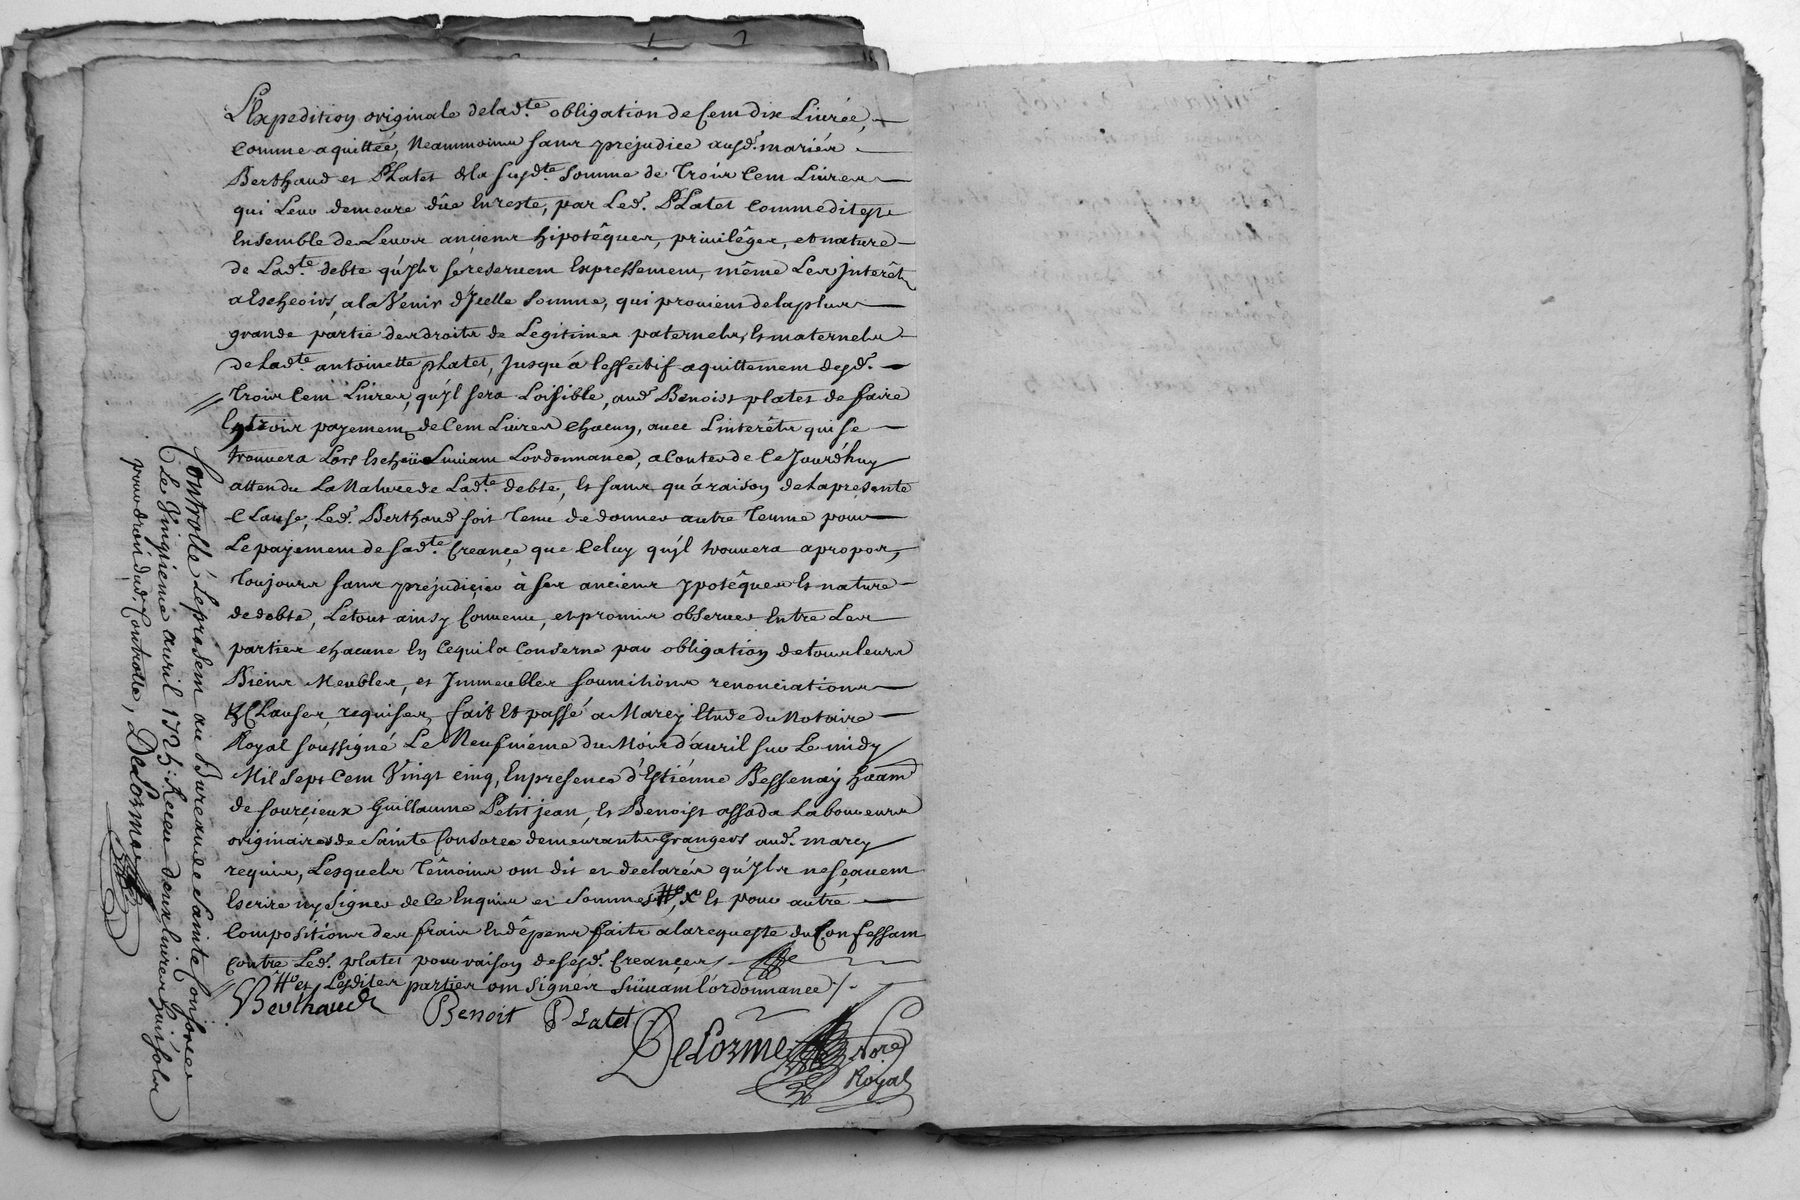 L'Expedition originale de lad.te obligation de Cent dix Livres,
comme aquittée, Neammoins sans prejudice ausd. mariés
Berthaud et Platet de la susd.te somme de Trois Cent Livres
qui Leur demeure dûe En reste, par Led. Platet comme dit est
Ensemble de Leurs anciens hipotêques, privilêges, et nature
de Lad.te debte qu'Ils se reservent Expressement, même Les Jnterêts
a Escheoirs, a la Venir d'Jcelle somme, qui provient de la plus
grande partie des droits de Legitimes paternels, Et maternels
de Lad.te antoinette platet, Jusqu'á l'effectif aquittement desd.
Trois Cent Livres, qu'Jl sera Loisible, aud. Benoist platet de faire
En trois payement de Cent Livres chacun, avec L'interêts qui se
trouvera Lors Escheü Suivant L'ordonnance, a Conter de Ce Jourd'huy
attendu La Nature de Lad.te debte, Et sans qu'á raison de La presente
Clause, Led. Berthaud soit Tenu de donner autre Terme pour
Le payement de Sad.te Creance, que Celuy qu'Jl trouvera apropos,
Toujours sans prejudicier à ses anciens ypotêques Et nature
de debte, Le tout ainsy Convenu, et promis observer Entre Les
parties chacune En Ce qui la Conserne par obligation de tous leurs
Biens Meubles, et Jmmeubles soumitions renonciations
& Clauses requises, fait Et passé a Marcy Etude du Notaire
Royal soussigné Le Neufvieme du Mois d'avril sur Le midy
Mil Sept Cent Vingt cinq, En presence d'Estiénne Bessenay haant
de sourcieux Guillaume Petit jean, Et Benoist assada Laboureurs
originaires de Sainte Consorce demeurants Grangers aud. marcy
requis, Lesquels Têmoins ont dit et declarés qu'Jls ne sçavent
Escrire ny Signer de Ce Enquis et Sommés Et pour autre
Compositions des frais Et dêpens faits a la requeste du Confessant
Contre Led. platet pour raison de sesd. Creances
et Lesdites parties ont signés suivant l'ordonnance
Berthaud Benoit Platet
Delorme No.re
Royal
Controllé Le present au Bureau de Sainte Consorce
Le Vingtiemé avril 1725 Receu deux livres huit sols
pour droit dud. Controlle, Delorme